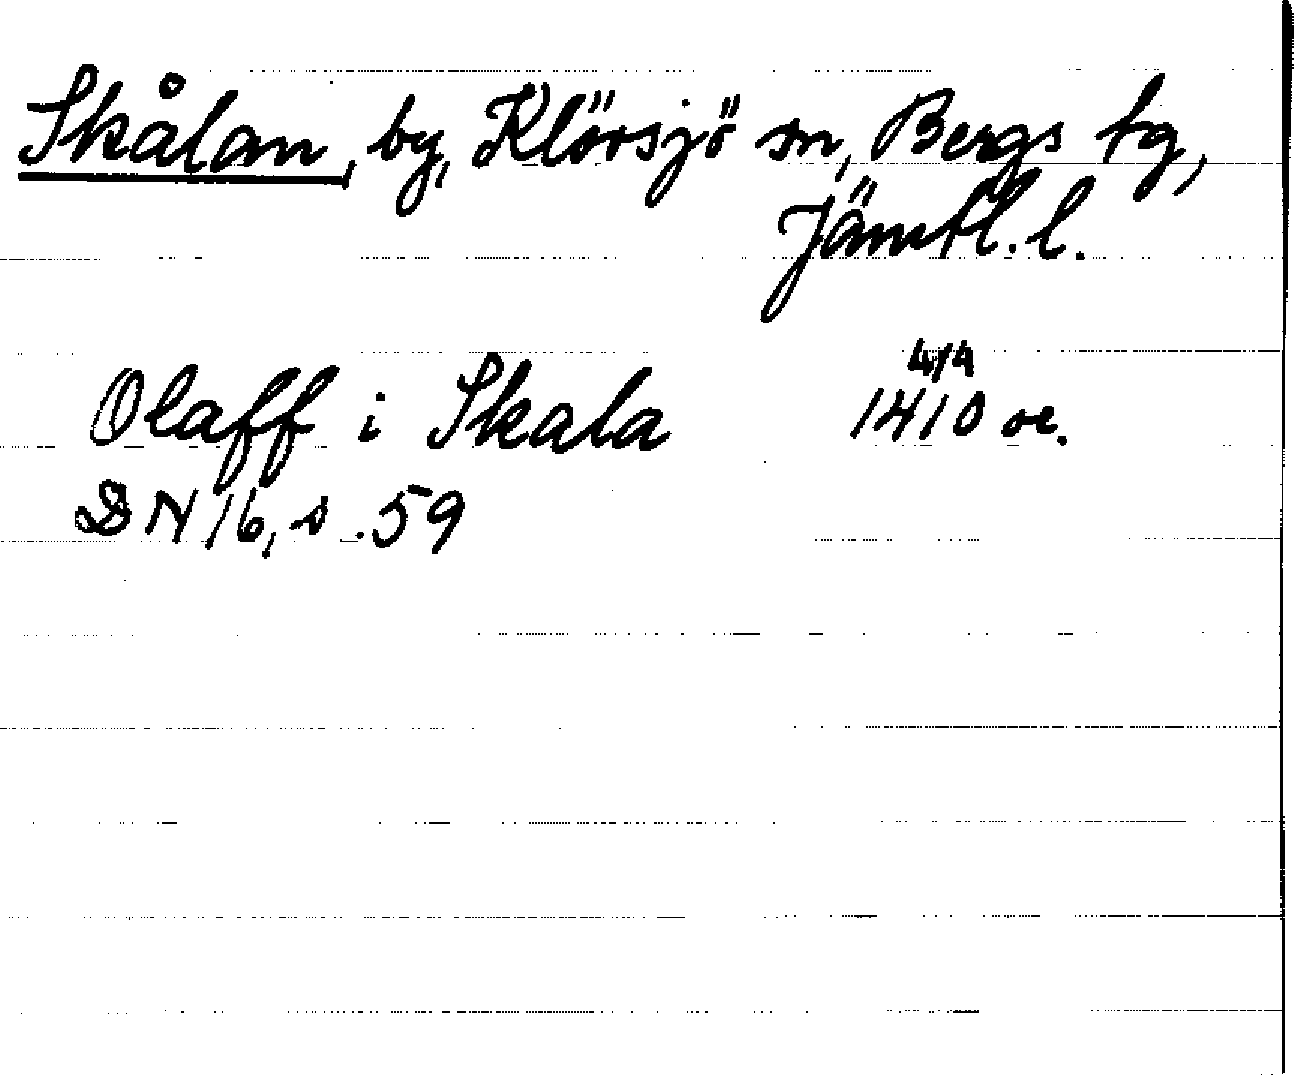 Skålan, by, Klövsjö sn, Bergs tg,
Jämtl. l.
4/4
Olaff i Skala 1410 or.
DN 16, s. 59